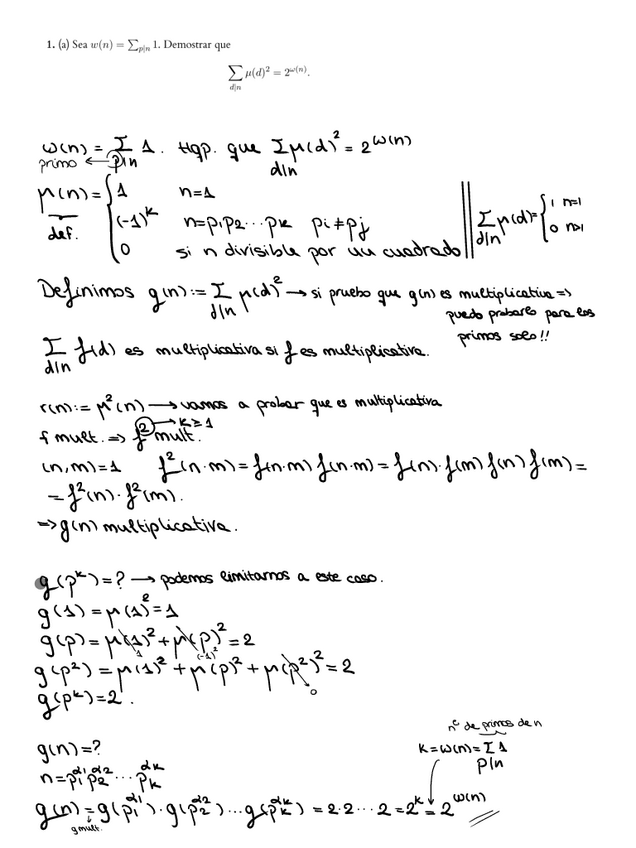 1. (a) Sea w(n) = ∑_{p|n} 1. Demostrar que
∑_{d|n} μ(d)² = 2^{ω(n)}.
ω(n) = ∑_{p|n} 1. Hqp. que ∑_{d|n} μ(d)² = 2^{ω(n)}
primo ←
μ(n) = { 1 n=1
(-1)^k n=p₁p₂...p_k p_i≠p_j
0 si n divisible por un cuadrado
def.
∑_{d|n} μ(d) = { 1 n=1
0 n>1
Definimos g(n) := ∑_{d|n} μ(d)² → si pruebo que g(n) es multiplicativa =>
puedo probarlo para los
primos solo!!
∑_{d|n} f(d) es multiplicativa si f es multiplicativa.
r(n) := μ²(n) → vamos a probar que es multiplicativa
f mult. => f² mult. → k≥1
(n,m)=1 f²(n·m) = f(n·m) f(n·m) = f(n)·f(m) f(n) f(m) =
= f²(n)·f²(m).
=> g(n) multiplicativa.
g(p^k) = ? → podemos limitarnos a este caso.
g(1) = μ(1)² = 1
g(p) = μ(1)² + μ(p)² = 2
1 (-1)²
g(p²) = μ(1)² + μ(p)² + μ(p²)² = 2
0
g(p^k) = 2.
nº de primos de n
g(n) = ?
k = ω(n) = ∑_{p|n} 1
n = p₁^{α1} p₂^{α2} ... p_k^{αk}
g(n) = g(p₁^{α1}) · g(p₂^{α2}) ... g(p_k^{αk}) = 2·2...2 = 2^k = 2^{ω(n)}
g mult.